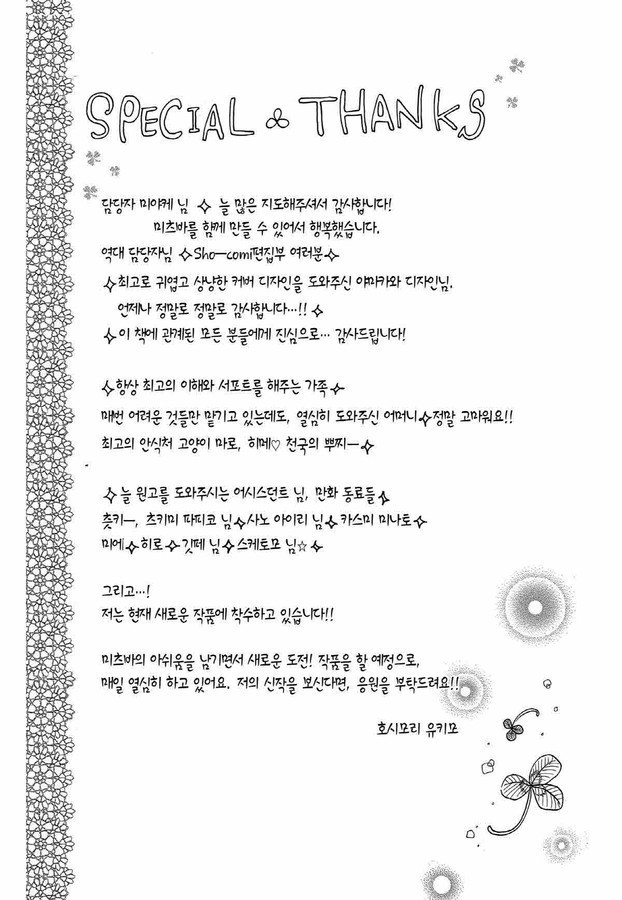 SPECIAL THANKS
담당자 미야케 님 ✧ 늘 많은 지도해주셔서 감사합니다!
미츠바를 함께 만들 수 있어서 행복했습니다.
역대 담당자님 ✧Sho-comi편집부 여러분✧
✧최고로 귀엽고 상냥한 커버 디자인을 도와주신 야마카와 디자인님.
언제나 정말로 정말로 감사합니다…!! ✧
✧이 책에 관계된 모든 분들에게 진심으로… 감사드립니다!
✧항상 최고의 이해와 서포트를 해주는 가족✧
매번 어려운 것들만 맡기고 있는데도, 열심히 도와주신 어머니✧정말 고마워요!!
최고의 안식처 고양이 마로, 히메♡ 천국의 뿌찌ー✧
✧늘 원고를 도와주시는 어시스던트 님, 만화 동료들✧
츳키ー, 츠키미 파피코 님✧사노 아이리 님✧카스미 미나토✧
미에✧히로✧깃페 님✧스케토모 님☆✧
그리고…!
저는 현재 새로운 작품에 착수하고 있습니다!!
미츠바의 아쉬움을 남기면서 새로운 도전! 작품을 할 예정으로,
매일 열심히 하고 있어요. 저의 신작을 보신다면, 응원을 부탁드려요!!
호시모리 유키모